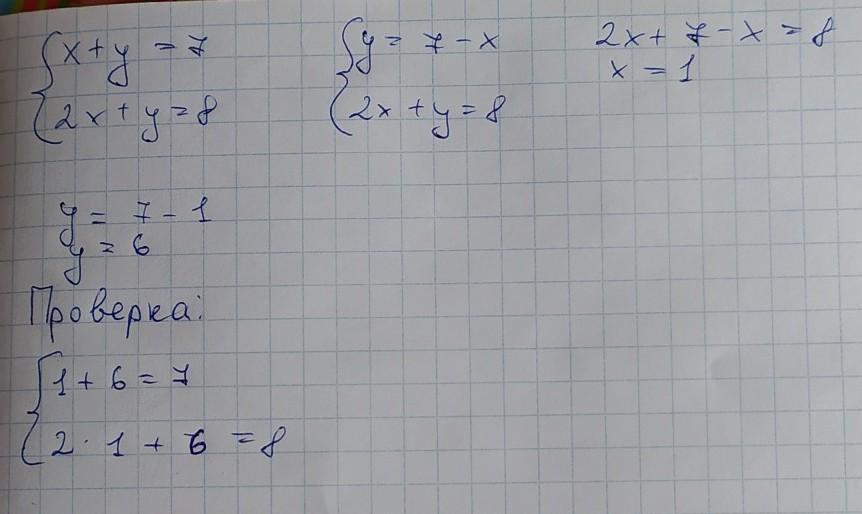 x + y = 7
2x + y = 8
y = 7 - x
2x + y = 8
2x + 7 - x = 8
x = 1
y = 7 - 1
y = 6
Проверка:
1 + 6 = 7
2 · 1 + 6 = 8